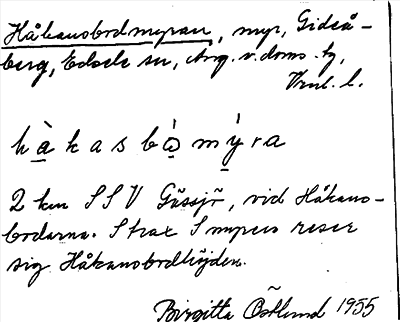 Håkanobodmyran, myr, Gideå-
berg, Edsele sn, Ång. v. doms. tg,
Vnul. l.
hàkasbòmýra
2 km SSV Gussjö, vid Håkano-
bodarna. Strax S myren reser
sig Håkanobodhöjden.
Birgitta Östlund 1955